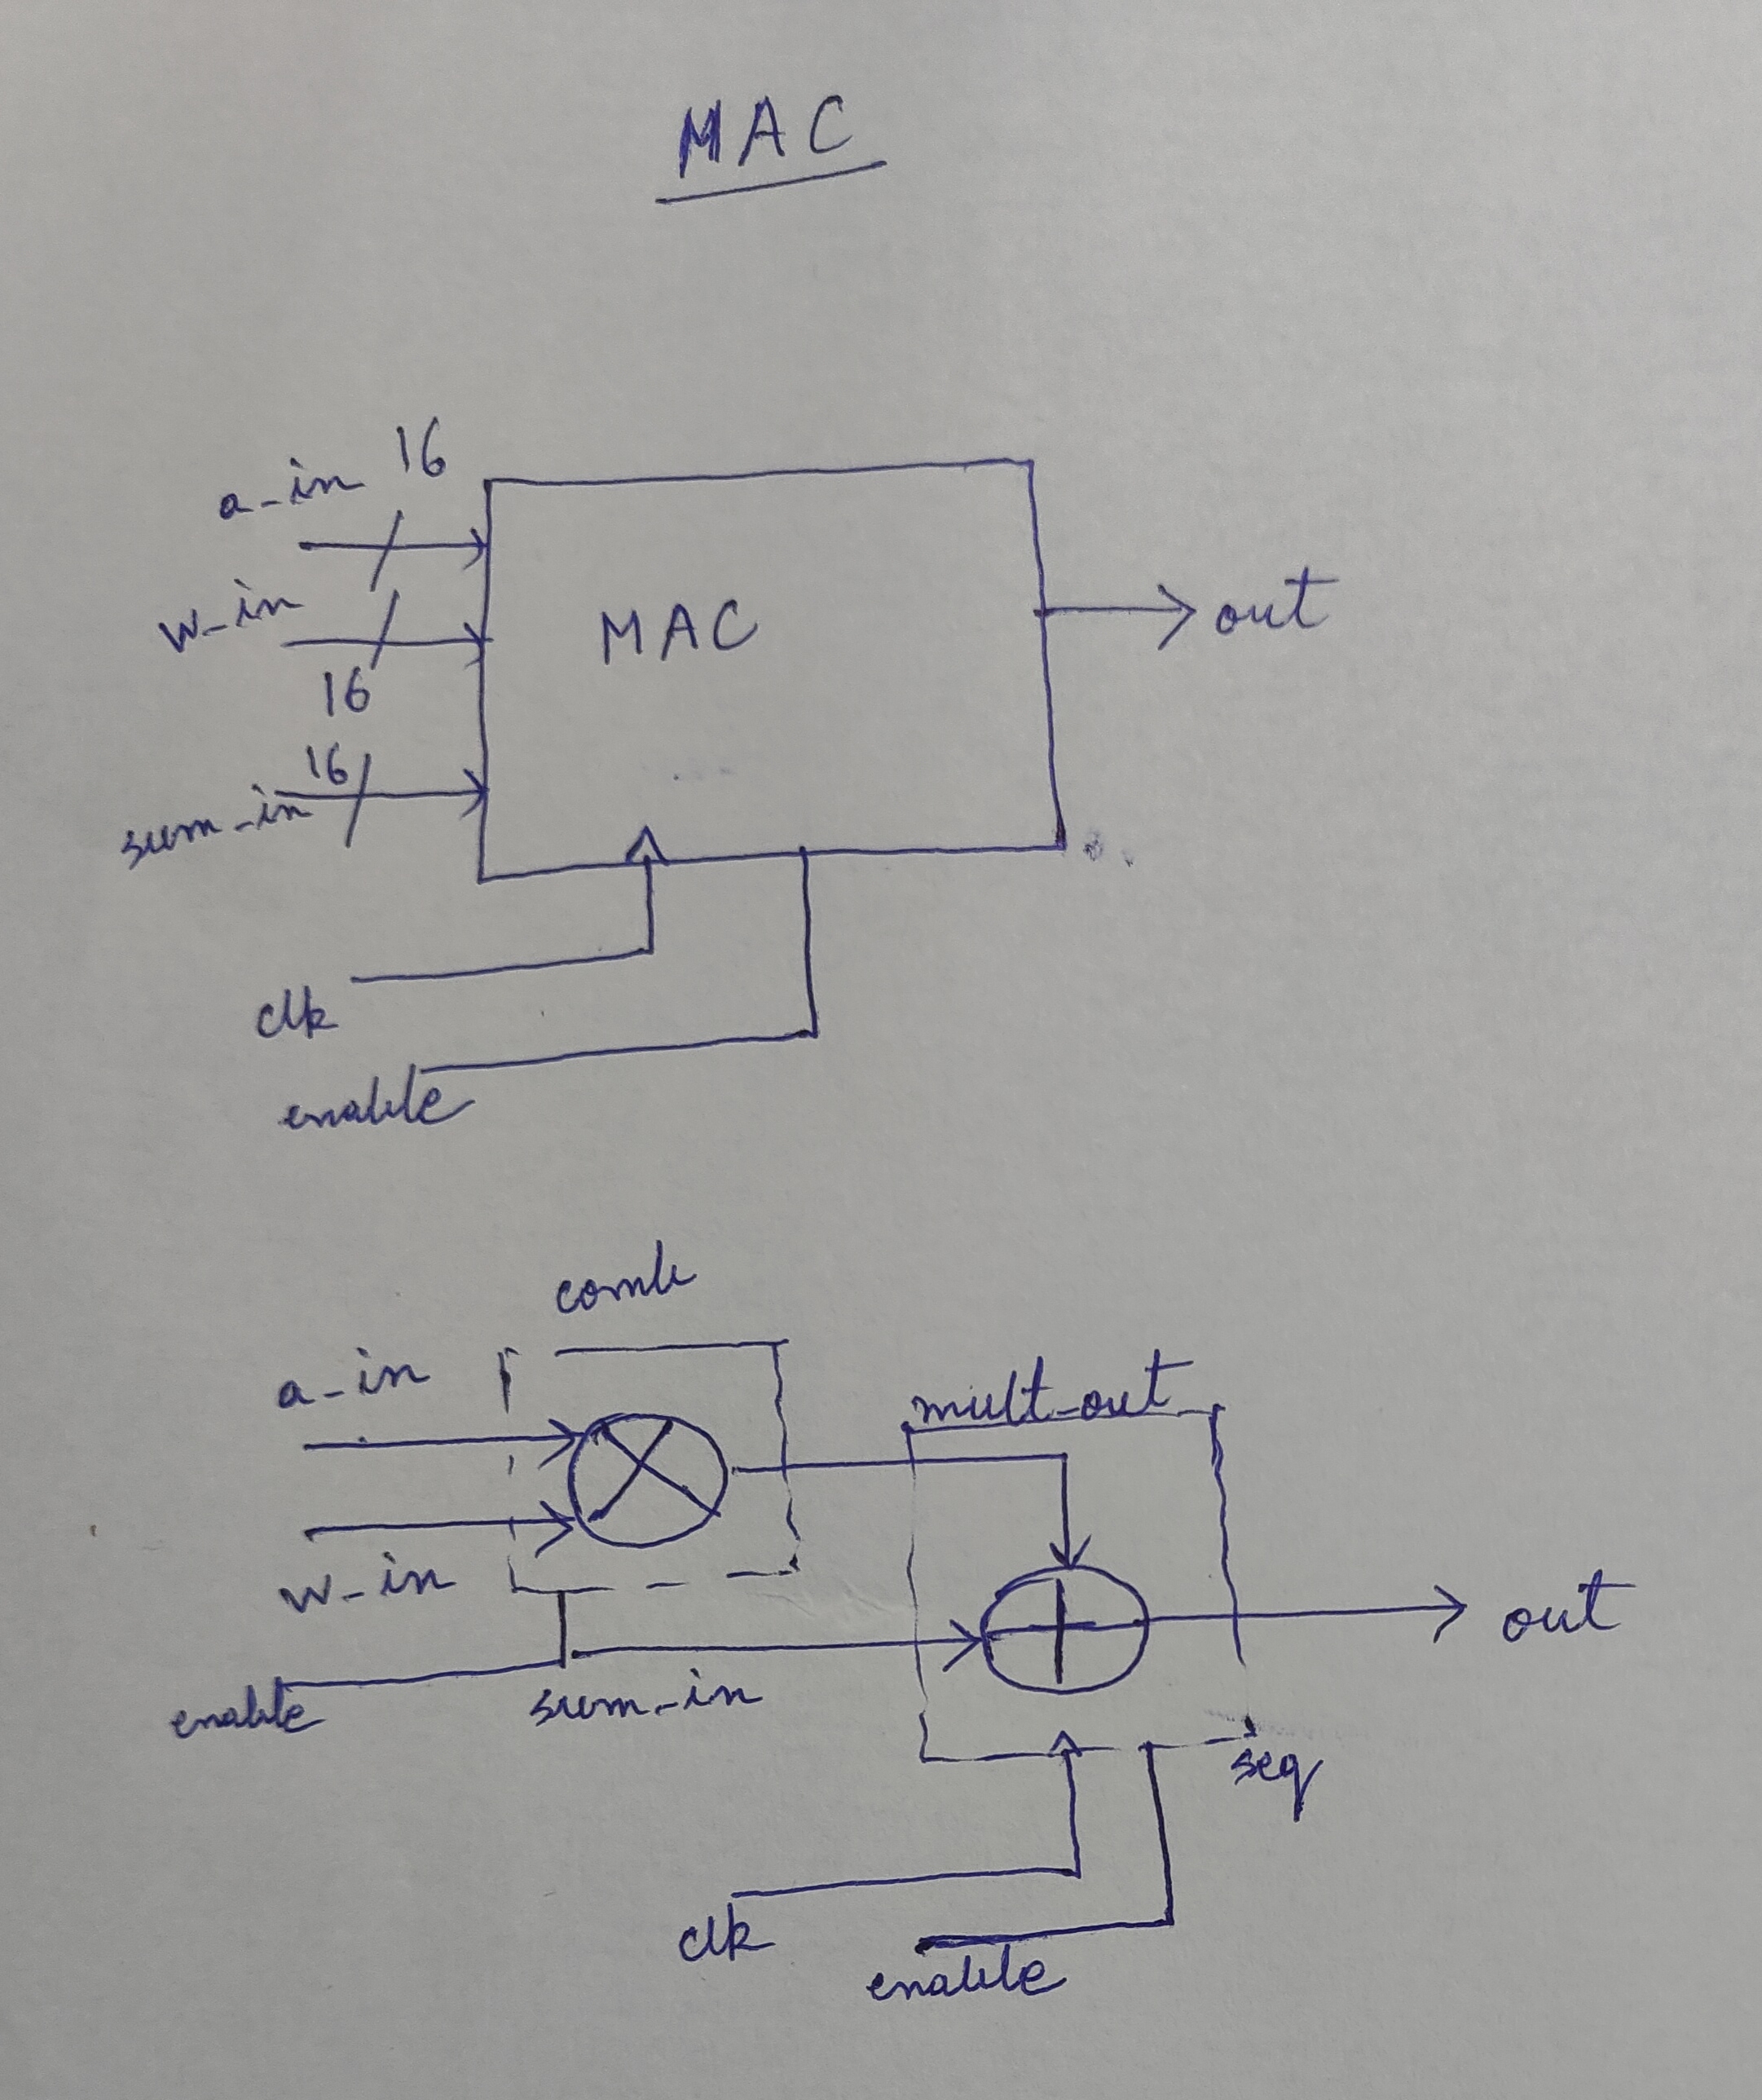 MAC
a_in 16
w_in
16
MAC
out
16
sum_in
clk
enable
comb
a_in
mult_out
w_in
out
enable
sum_in
seq
clk
enable